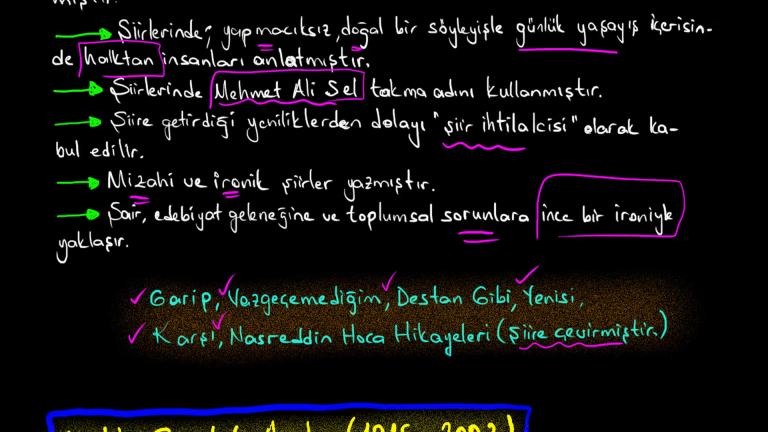 → Şiirlerinde; yapmacıksız, doğal bir söyleyişle günlük yaşayış içerisin-
de halktan insanları anlatmıştır.
→ Şiirlerinde Mehmet Ali Sel takma adını kullanmıştır.
→ Şiire getirdiği yeniliklerden dolayı "şiir ihtilalcisi" olarak ka-
bul edilir.
→ Mizahi ve ironik şiirler yazmıştır.
→ Şair, edebiyat geleneğine ve toplumsal sorunlara ince bir ironiyle
yaklaşır.
✓ Garip, ✓ Vazgeçemediğim, ✓ Destan Gibi, ✓ Yenisi,
✓ Karşı, ✓ Nasreddin Hoca Hikayeleri (Şiire çevirmiştir.)